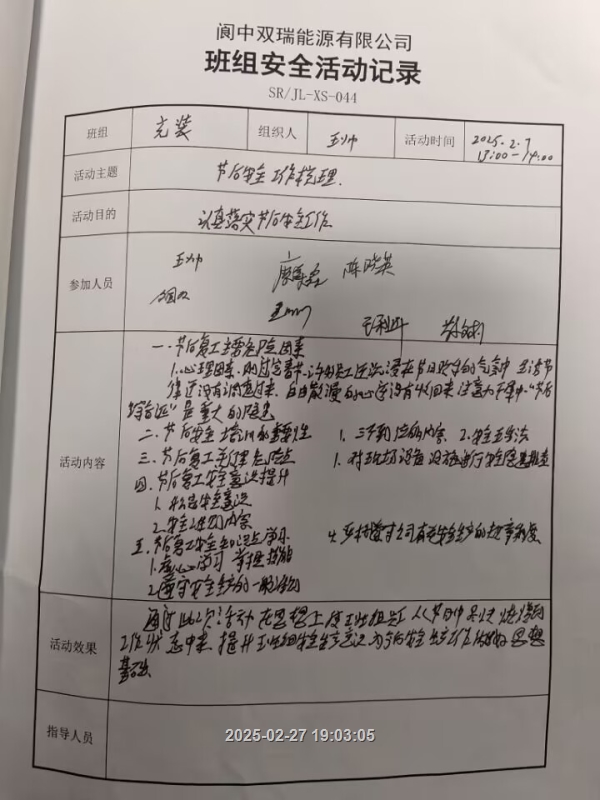 阆中双瑞能源有限公司
班组安全活动记录
SR/JL-XS-044
班组 充装 组织人 王帅 活动时间 2025.2.7
13:00-14:00
活动主题 节后安全工作梳理.
活动目的 认真落实节后安全工作
参加人员 王帅 陈晓英
活动内容
一.节后复工主要危险因素
1.心理因素.刚过完春节.许多员工还沉浸在节日欢乐的气氛中 生活节
律还没有调整过来.自由散漫的心还没有收回来 注意力不集中."节后
综合症"是重大的隐患
二.节后安全培训的重要性 1.三不到位的内容. 2.安全五步法
三.节后复工无处理危险点 1.对现场设备设施进行安全隐患排查
四.节后复工安全意识提升
1.提高安全意识
2.安全培训内容
五.节后复工安全知识点学习. 4.严格遵守公司有关安全生产的规章制度
1.虚心学习 掌握技能
2.遵守安全生产的一般规则
活动效果 通过此次活动 在思想上使班组员工从节日中尽快
工作状态中来.提升班组安全生产意识 为今后安全生产工作做好思想
基础
指导人员
2025-02-27 19:03:05